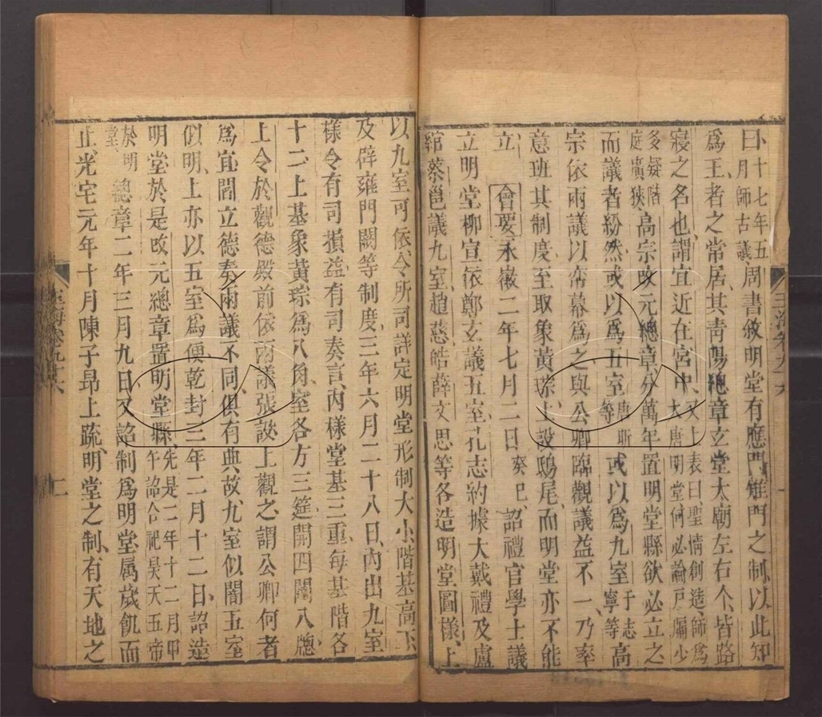 曰十七年五月師古議周書敘明堂有應門雉門之制以此知
爲王者之常居其青陽總章玄堂太廟左右个皆路
寢之名也謂宜近在宮中太上表曰聖情創造師爲大唐明堂何必論戶牖少
多疑階庭廣狹高宗改元總章分萬年置明堂縣欲必立之
而議者紛然或以爲五室唐昕等或以爲九室于志寧等高
宗依兩議以帟幕爲之與公卿臨觀議益不一乃率
意班其制度至取象黃琮上設鴟尾而明堂亦不能
立會要永徽二年七月二日癸巳詔禮官學士議
立明堂柳宣依鄭玄議五室孔志約據大戴禮及盧
綰蔡邕議九室趙慈皓薛文思等各造明堂圖樣上
以九室可依令所司詳定明堂形制大小階基高下
及辟雍門闕等制度三年六月二十八日內出九室
樣令有司損益有司奏言內樣堂基三重每基階各
十二上基象黃琮爲八角室各方三筵開四闥八牕
上令於觀德殿前依兩議張設上觀之謂公卿何者
爲宜閻立德奏兩議不同俱有典故九室似闇五室
似明上亦以五室爲便乾封三年二月十二日詔造
明堂於是改元總章置明堂縣先是二年十二月甲午詔合祀昊天五帝
於明堂總章二年三月九日又詔制爲明堂属歲飢而
止光宅元年十月陳子昂上疏明堂之制有天地之
玉海卷九十六